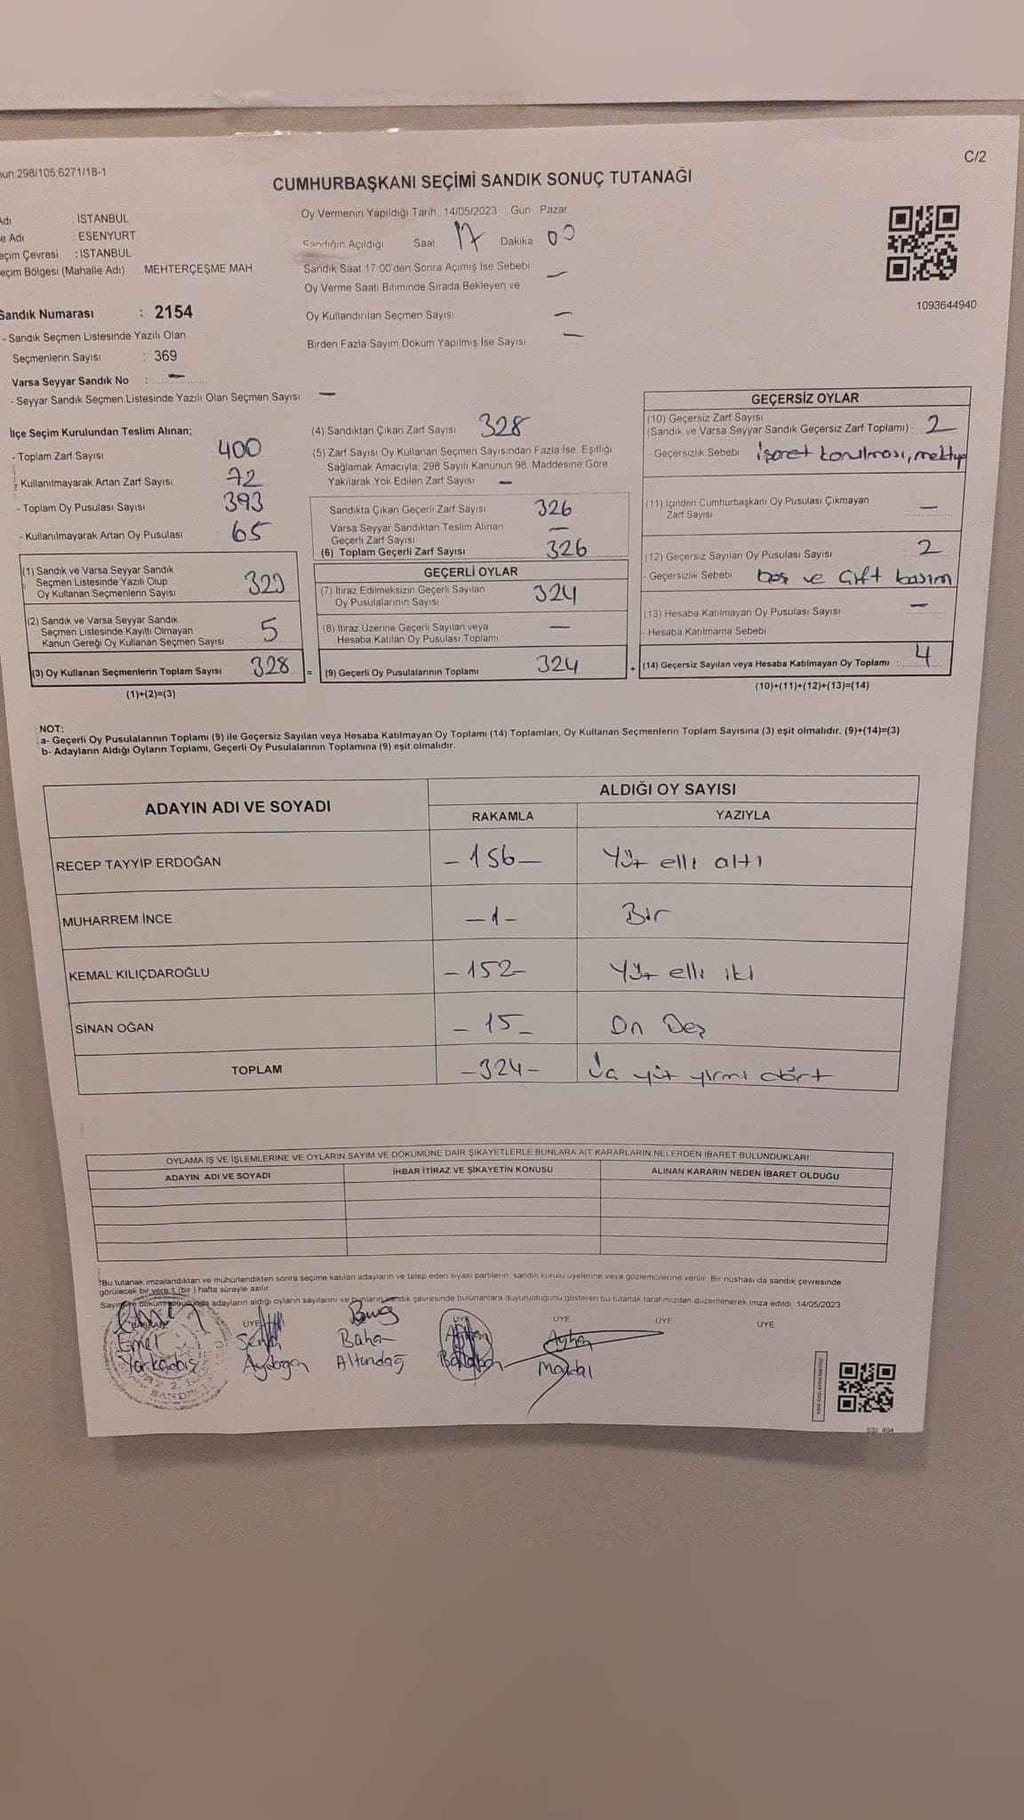 C/2
298/105;6271/18-1
CUMHURBAŞKANI SEÇİMİ SANDIK SONUÇ TUTANAĞI
Adı : İSTANBUL
e Adı : ESENYURT
eçim Çevresi : İSTANBUL
eçim Bölgesi (Mahalle Adı) MEHTERÇEŞME MAH
Sandık Numarası : 2154
- Sandık Seçmen Listesinde Yazılı Olan
Seçmenlerin Sayısı : 369
Varsa Seyyar Sandık No : —
- Seyyar Sandık Seçmen Listesinde Yazılı Olan Seçmen Sayısı —
Oy Vermenin Yapıldığı Tarih : 14/05/2023 Gün Pazar
Sandığın Açıldığı Saat 17 Dakika 00
Sandık Saat 17:00'den Sonra Açımış İse Sebebi —
Oy Verme Saati Bitiminde Sırada Bekleyen ve
Oy Kullandırılan Seçmen Sayısı —
Birden Fazla Sayım Döküm Yapılmış İse Sayısı —
1093644940
İlçe Seçim Kurulundan Teslim Alınan;
- Toplam Zarf Sayısı 400
- Kullanılmayarak Artan Zarf Sayısı 72
- Toplam Oy Pusulası Sayısı 393
- Kullanılmayarak Artan Oy Pusulası 65
(1) Sandık ve Varsa Seyyar Sandık
Seçmen Listesinde Yazılı Olup
Oy Kullanan Seçmenlerin Sayısı 323
(2) Sandık ve Varsa Seyyar Sandık
Seçmen Listesinde Kayıtlı Olmayan
Kanun Gereği Oy Kullanan Seçmen Sayısı 5
(3) Oy Kullanan Seçmenlerin Toplam Sayısı 328 =
(1)+(2)=(3)
(4) Sandıktan Çıkan Zarf Sayısı 328
(5) Zarf Sayısı Oy Kullanan Seçmen Sayısından Fazla İse, Eşitliği
Sağlamak Amacıyla; 298 Sayılı Kanunun 98. Maddesine Göre
Yakılarak Yok Edilen Zarf Sayısı —
Sandıkta Çıkan Geçerli Zarf Sayısı 326
Varsa Seyyar Sandıktan Teslim Alınan
Geçerli Zarf Sayısı —
(6) Toplam Geçerli Zarf Sayısı 326
GEÇERLİ OYLAR
(7) İtiraz Edilmeksizin Geçerli Sayılan
Oy Pusulalarının Sayısı 324
(8) İtiraz Üzerine Geçerli Sayılan veya
Hesaba Katılan Oy Pusulası Toplamı —
(9) Geçerli Oy Pusulalarının Toplamı 324 +
GEÇERSİZ OYLAR
(10) Geçersiz Zarf Sayısı
(Sandık ve Varsa Seyyar Sandık Geçersiz Zarf Toplamı) : 2
- Geçersizlik Sebebi işaret konulması, mektup
(11) İçinden Cumhurbaşkanı Oy Pusulası Çıkmayan
Zarf Sayısı —
(12) Geçersiz Sayılan Oy Pusulası Sayısı 2
- Geçersizlik Sebebi boş ve Çift basım
(13) Hesaba Katılmayan Oy Pusulası Sayısı —
- Hesaba Katılmama Sebebi
(14) Geçersiz Sayılan veya Hesaba Katılmayan Oy Toplamı : 4
(10)+(11)+(12)+(13)=(14)
NOT:
a- Geçerli Oy Pusulalarının Toplamı (9) ile Geçersiz Sayılan veya Hesaba Katılmayan Oy Toplamı (14) Toplamları, Oy Kullanan Seçmenlerin Toplam Sayısına (3) eşit olmalıdır. (9)+(14)=(3)
b- Adayların Aldığı Oyların Toplamı, Geçerli Oy Pusulalarının Toplamına (9) eşit olmalıdır.
ADAYIN ADI VE SOYADI
ALDIĞI OY SAYISI
RAKAMLA YAZIYLA
RECEP TAYYİP ERDOĞAN -156- Yüz elli altı
MUHARREM İNCE -1- Bir
KEMAL KILIÇDAROĞLU -152- Yüz elli iki
SİNAN OĞAN -15- On Beş
TOPLAM -324- Üç yüz yirmi dört
OYLAMA İŞ VE İŞLEMLERİNE VE OYLARIN SAYIM VE DÖKÜMÜNE DAİR ŞİKAYETLERLE BUNLARA AİT KARARLARIN NELERDEN İBARET BULUNDUKLARI
ADAYIN ADI VE SOYADI İHBAR İTİRAZ VE ŞİKAYETİN KONUSU ALINAN KARARIN NEDEN İBARET OLDUĞU
*Bu tutanak imzalandıktan ve mühürlendikten sonra seçime katılan adayların ve talep eden siyasi partilerin sandık kurulu üyelerine veya gözlemcilerine verilir. Bir nüshası da sandık çevresinde
görülecek bir yere 1 (bir) hafta süreyle asılır.
adayların aldığı oyların sayılarını ve bunların sandık çevresinde bulunanlara duyurulduğunu gösteren bu tutanak tarafımızdan düzenlenerek imza edildi. 14/05/2023
ÜYE ÜYE ÜYE ÜYE ÜYE
Emel Baha Ayhan
Aydoğan Altındağ